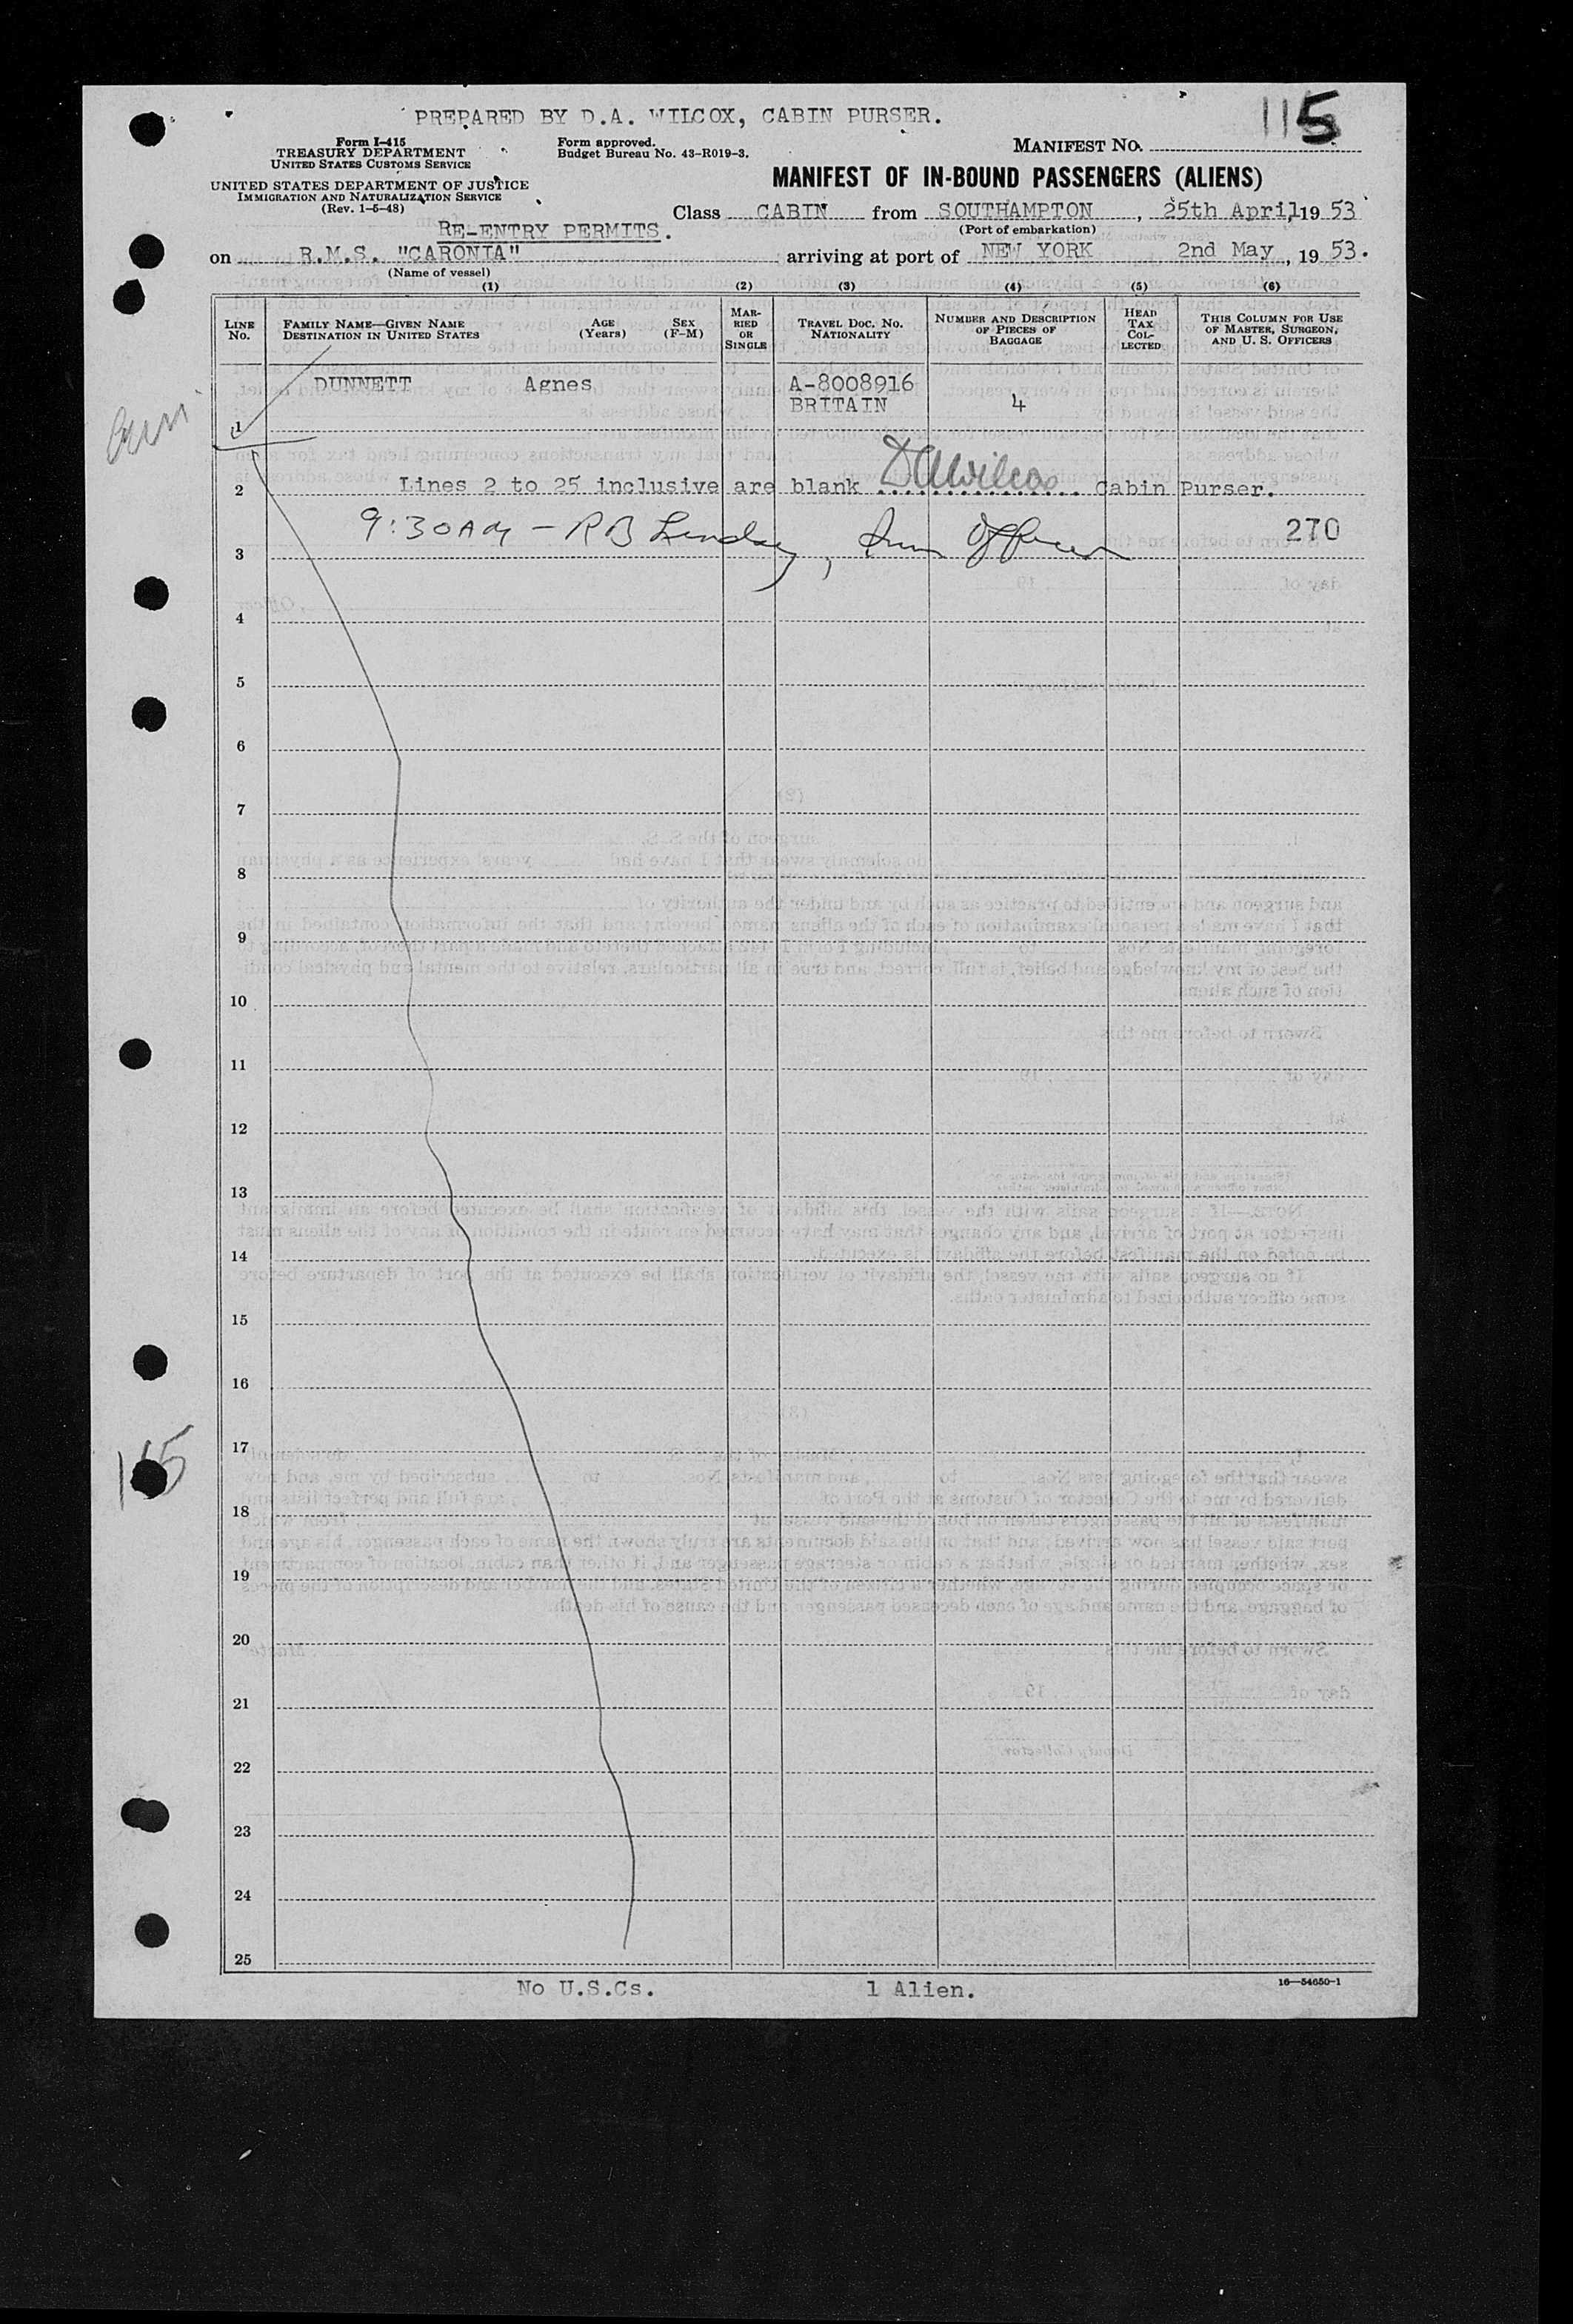 PREPARED BY D.A. WILCOX, CABIN PURSER.
115
Form I-415
TREASURY DEPARTMENT
UNITED STATES CUSTOMS SERVICE
Form approved.
Budget Bureau No. 43-R019-3.
MANIFEST NO.
UNITED STATES DEPARTMENT OF JUSTICE
IMMIGRATION AND NATURALIZATION SERVICE
(Rev. 1-6-48)
MANIFEST OF IN-BOUND PASSENGERS (ALIENS)
Class CABIN from SOUTHAMPTON, 25th April, 19 53
(Port of embarkation)
RE-ENTRY PERMITS.
on R.M.S. "CARONIA" arriving at port of NEW YORK 2nd May, 19 53.
(Name of vessel)
(1) (2) (3) (4) (5) (6)
LINE No. FAMILY NAME—GIVEN NAME DESTINATION IN UNITED STATES AGE (Years) SEX (F-M) MARRIED OR SINGLE TRAVEL DOC. NO. NATIONALITY NUMBER AND DESCRIPTION OF PIECES OF BAGGAGE HEAD TAX COLLECTED THIS COLUMN FOR USE OF MASTER, SURGEON, AND U. S. OFFICERS
DUNNETT Agnes A-8008916
BRITAIN 4
1
2 Lines 2 to 25 inclusive are blank DAWilcox Cabin Purser.
9:30AM - R B Lindsay, Imm Officer 270
3
4
5
6
7
8
9
10
11
12
13
14
15
16
17
115
18
19
20
21
22
23
24
25
No U.S.Cs. 1 Alien.
16—54650-1